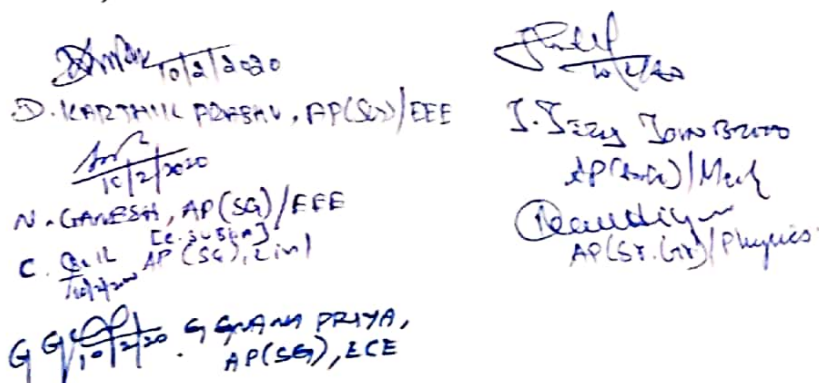 10/2/2020
D. KARTHIK PRABHU, AP(SG)/EEE
10/2/2020
N. GANESH, AP(SG)/EEE
[C. SUBHA]
C. AP (SG), Civil
10/2/2020
G G 10/2/20. G GNANA PRIYA,
AP(SG), ECE
10/2/20
J. Jerry John Britto
AP(Sr.Gr)/Mech
AP(Sr.Gr)/Physics